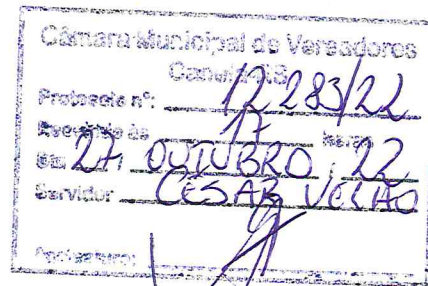 Câmara Municipal de Vereadores
Canela-RS
Protocolo nº: 12.283/22
Recebido às 17 horas
Em 27, OUTUBRO, 22
Servidor CESAR VELHO
Assinatura: